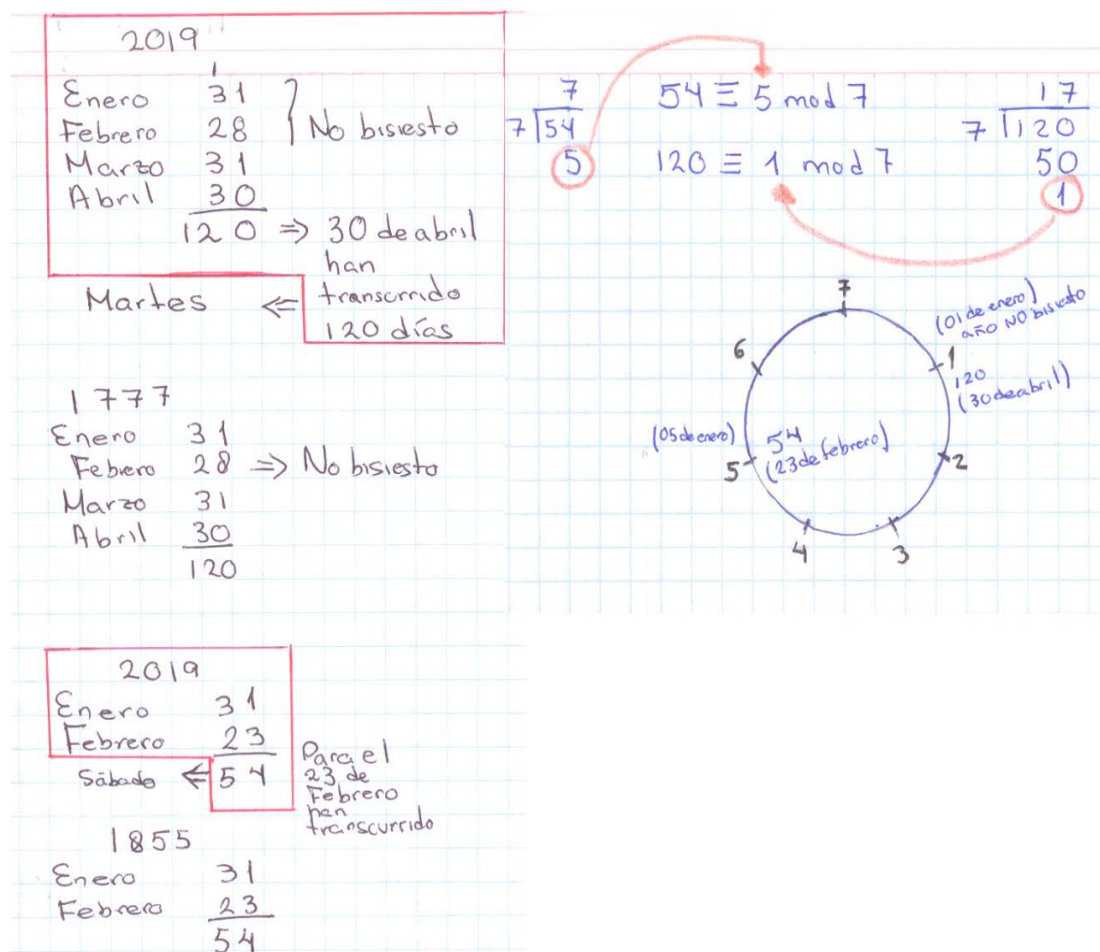 2019
1
Enero 31
Febrero 28 No bisiesto
Marzo 31
Abril 30
120 ⇒ 30 de abril
han
transcurrido
120 días
Martes ⇐
1777
Enero 31
Febrero 28 ⇒ No bisiesto
Marzo 31
Abril 30
120
2019
Enero 31
Febrero 23
Sábado ⇐ 54
Para el
23 de
Febrero
han
transcurrido
1855
Enero 31
Febrero 23
54
7
7 54
5
54 ≡ 5 mod 7
120 ≡ 1 mod 7
17
7 120
50
1
7
(01 de enero)
año NO bisiesto
1
120
(30 de abril)
6
(05 de enero)
54
(23 de febrero)
5
2
4
3